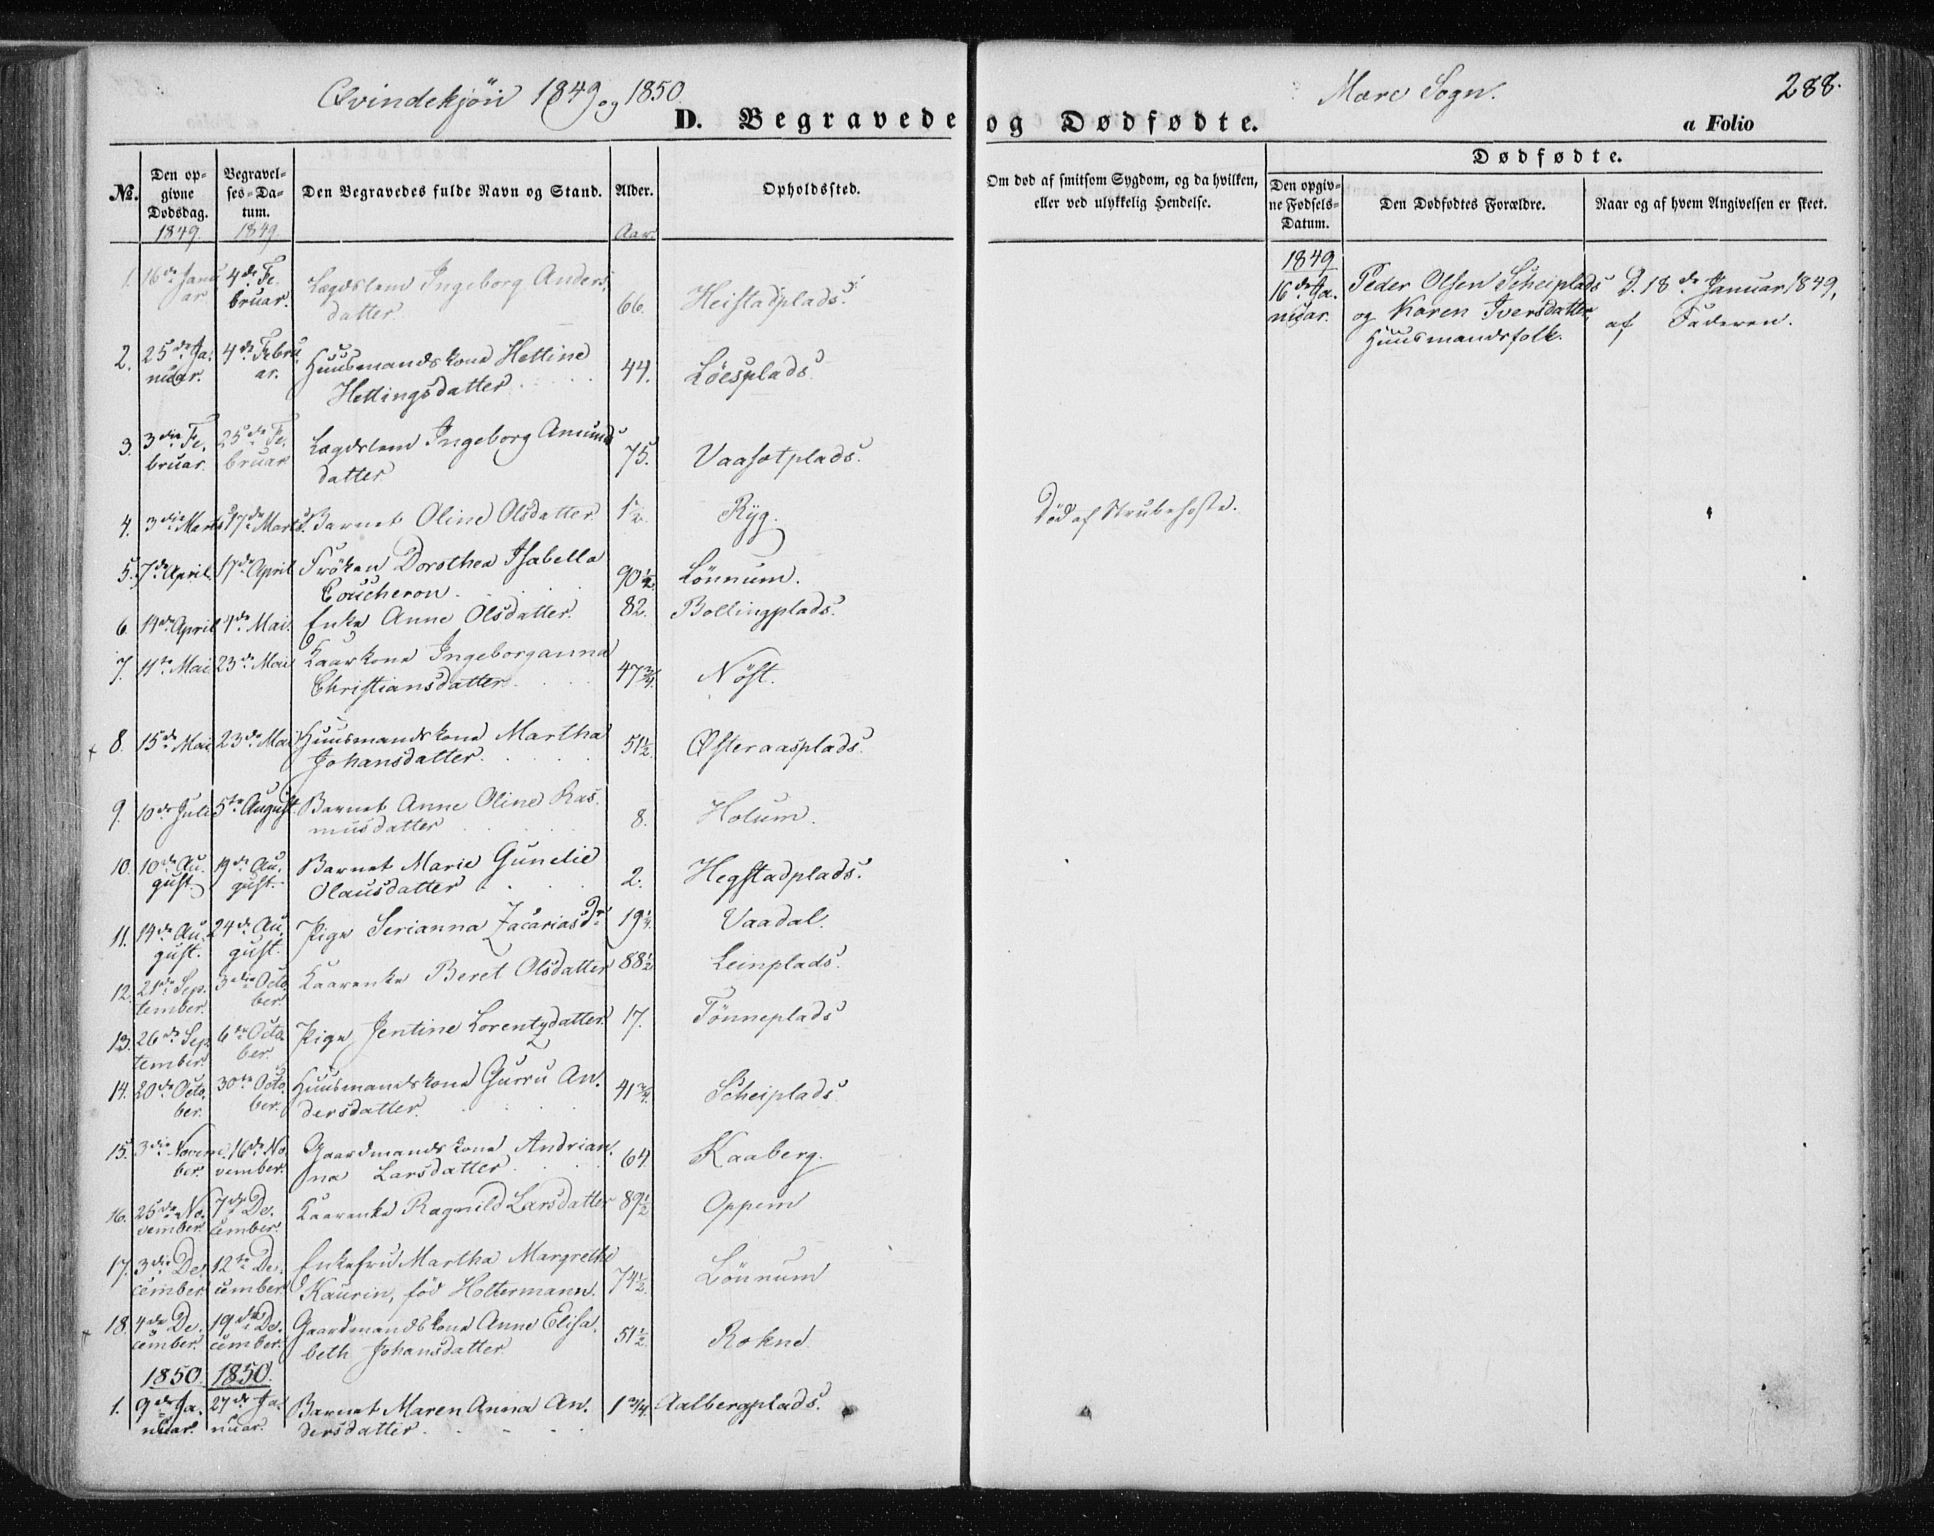 Qvindekjön 1849 og 1850.
Mære Sogn.
288.
D. Begravede og Dødfødte.
a Folio
№.
Den opgivne Dødsdag.
Begravelses-Datum.
Den Begravedes fulde Navn og Stand.
Alder.
Opholdssted.
Om død af smitsom Sygdom, og da hvilken, eller ved ulykkelig Hendelse.
Dødfødte.
Den opgivne Fødsels-Datum.
Den Dødfødtes Forældre.
Naar og af hvem Angivelsen er skeet.
1849. 1849. Aar.
1. 16de Januar. 4de Februar. Lægdslem Ingeborg Andersdatter. 66. Heistadplads.
2. 25de Januar. 4de Februar. Huusmandskone Hettine Hettingsdatter. 44. Löesplads.
3. 3die Februar. 25de Februar Lægdslem Ingeborg Amundsdatter 75. Vaasetplads.
4. 3die Marts 17de Marts. Barnet Oline Olsdatter. 1/2. Ryg. Död af Strubehoste.
5. 7de April. 17de April Fröken Dorothea Isabella Coucheron. 90 1/2. Lönnum.
6 14de April 4de Mai. Enke Anne Olsdatter. 82. Bollingplads.
7. 11te Mai 23de Mai Kaarkone Ingeborganna Christiansdatter. 47 3/4. Nöst.
8. 15de Mai 23de Mai Huusmandskone Martha Johansdatter. 51 1/2. Østeraasplads.
9. 10de Juli 5te August. Barnet Anne Oline Rasmusdatter 8. Holum.
10. 10de August. 19de August. Barnet Marie Gunelie Olausdatter 2. Hegstadplads.
11. 14de August. 24de August. Pige Serianna Zacariasdr 19 1/4. Vaadal.
12. 21de September. 3die October. Kaarenke Beret Olsdatter 88 1/2 Leinplads.
13. 26de September. 6te October. Pige Jentine Lorentzdatter. 17. Tönneplads
14. 20de October. 30te October. Huusmandskone Gurru Andersdatter. 41 3/4. Scheiplads
15. 3die November. 16de November. Gaardmandskone Andrianna Larsdatter. 64. Kaaberg.
16. 25de November 7de December. Kaarenke Ragnild Larsdatter 89 1/2 Oppem
17. 3die December 12te December. Enkefru Martha Margrethe Kaurin, föd Holtermann. 74 1/2. Lönnum
18. 4de December. 19de December. Gaardmandskone Anne Elisabeth Johansdatter. 51 1/2. Rokne
1850. 1850.
1. 9de Januar. 27de Januar. Barnet Maren Anna Andersdatter. 1 3/4 Aalbergplads.
1849
16de Januar. Peder Olsen Scheiplads og Karen Iversdatter, Huusmandsfolk.
D. 18de Januar 1849, af Faderen.